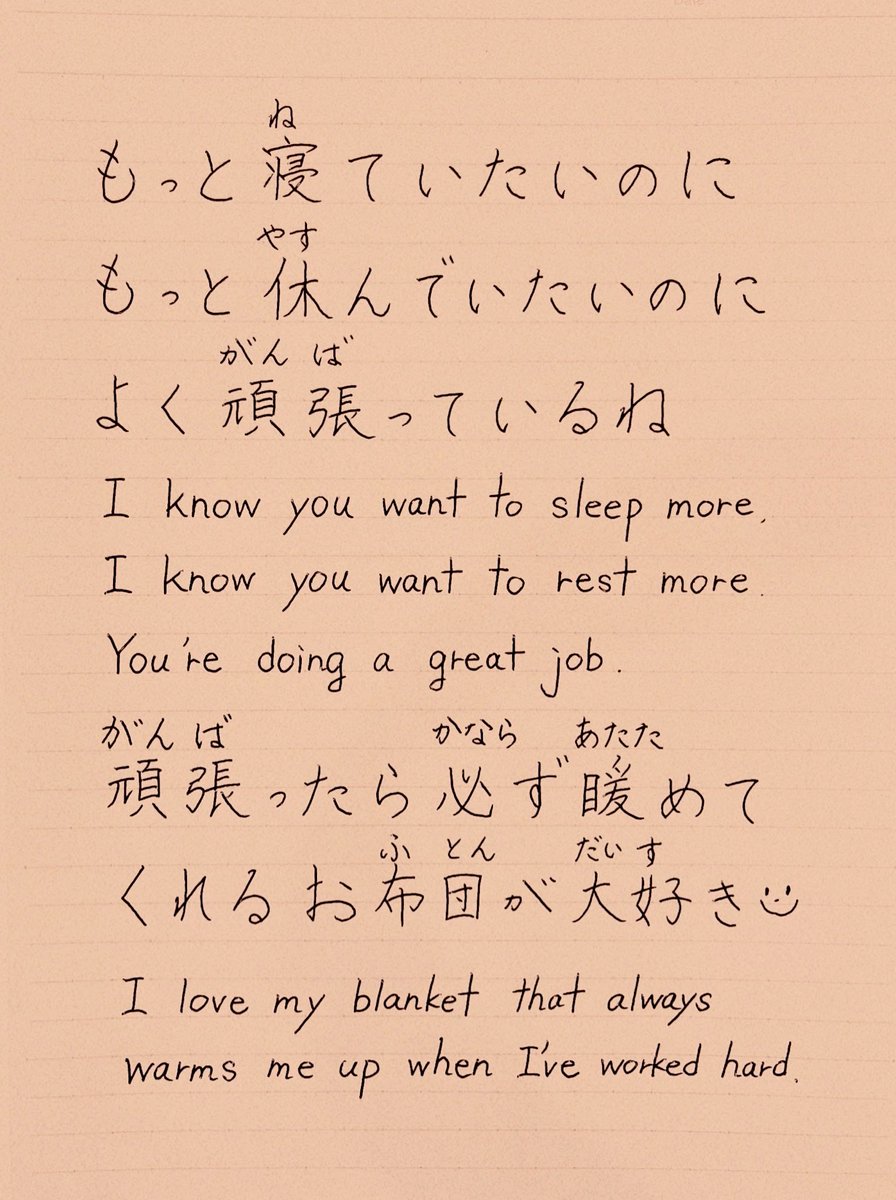 ね
もっと寝ていたいのに
やす
もっと休んでいたいのに
がんば
よく頑張っているね
I know you want to sleep more.
I know you want to rest more.
You're doing a great job.
がんば かなら あたた
頑張ったら必ず暖めて
ふとん だいす
くれるお布団が大好き
I love my blanket that always
warms me up when I've worked hard.